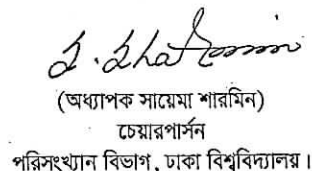 (অধ্যাপক সায়েমা শারমিন)
চেয়ারপার্সন
পরিসংখ্যান বিভাগ, ঢাকা বিশ্ববিদ্যালয়।